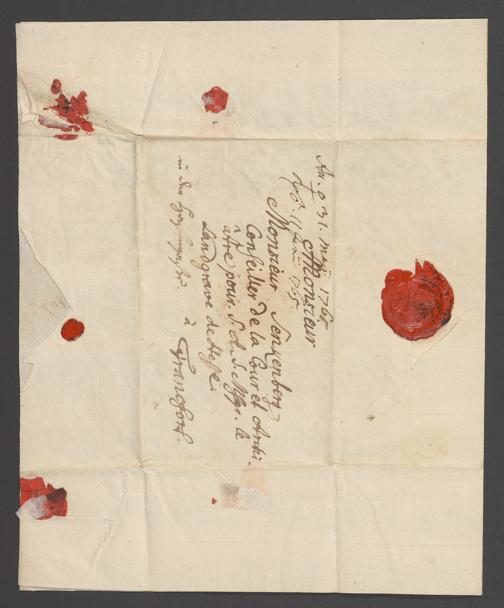 Am. 31. May 1765
11 Juni 1765.
Monsieur
Monsieur Senkenberg
Conseiller de la Cour et Archi-
atre pour S. A. S. Msgr. le
Landgrave de Hesse.
à Francfort.
in der